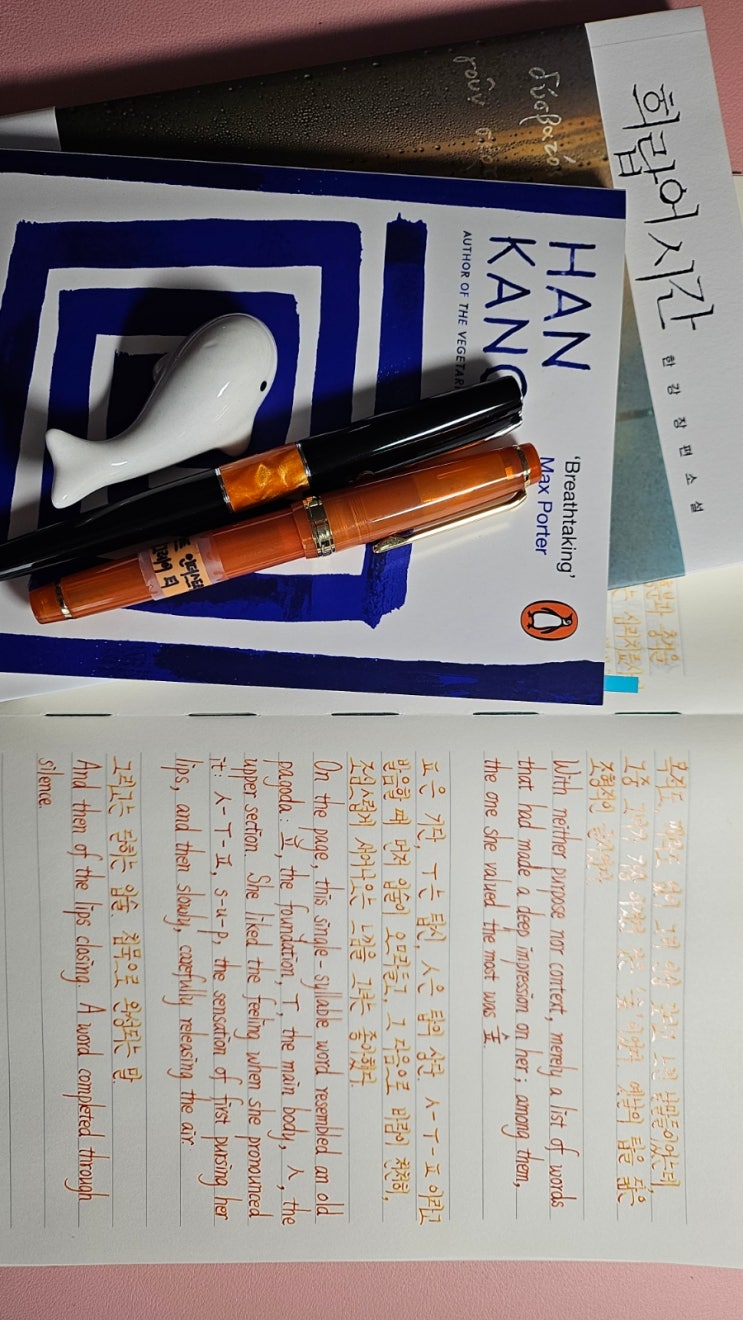 희랍어 시간
한 강 장 편 소 설
HAN
KANG
AUTHOR OF THE
'Breathtaking'
Max Porter
목적도, 맥락도 없이 그저 인상 깊다고 느낀 낱말들이었는데,
그중 그녀가 가장 아꼈던 것은 '숲'이었다. 옛날의 탑을 닮은
조형적인 글자였다.
With neither purpose nor context, merely a list of words
that had made a deep impression on her; among them,
the one she valued the most was 숲.
ㅍ은 기단, ㅜ는 탑신, ㅅ은 탑의 상단. ㅅ-ㅜ-ㅍ이라고
발음할 때 먼저 입술이 오므라들고, 그 다음으로 바람이 천천히,
조심스럽게 새어나오는 느낌을 그녀는 좋아했다.
On the page, this single-syllable word resembled an old
pagoda: ㅍ, the foundation, ㅜ, the main body, ㅅ, the
upper section. She liked the feeling when she pronounced
it: ㅅ-ㅜ-ㅍ, s-u-p, the sensation of first pursing her
lips, and then slowly, carefully releasing the air.
그리고는 닫히는 입술. 침묵으로 완성되는 말.
And then of the lips closing. A word completed through
silence.